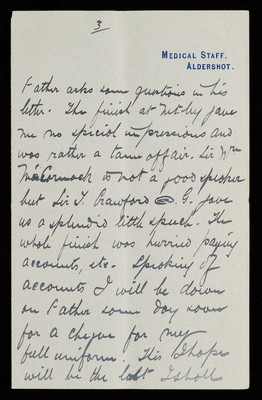 3
MEDICAL STAFF,
ALDERSHOT.
Father asks some questions in his
letter. The finish at Netley gave
me no special impressions and
was rather a tame affair. Sir Wm
MacCormack is not a good speaker
but Sir T. Crawford D.G. gave
us a splendid little speech. The
whole finish was hurried paying
accounts, etc. Speaking of
accounts I will be down
on Father some day soon
for a cheque for my
full uniform. This I hope
will be the last I shall